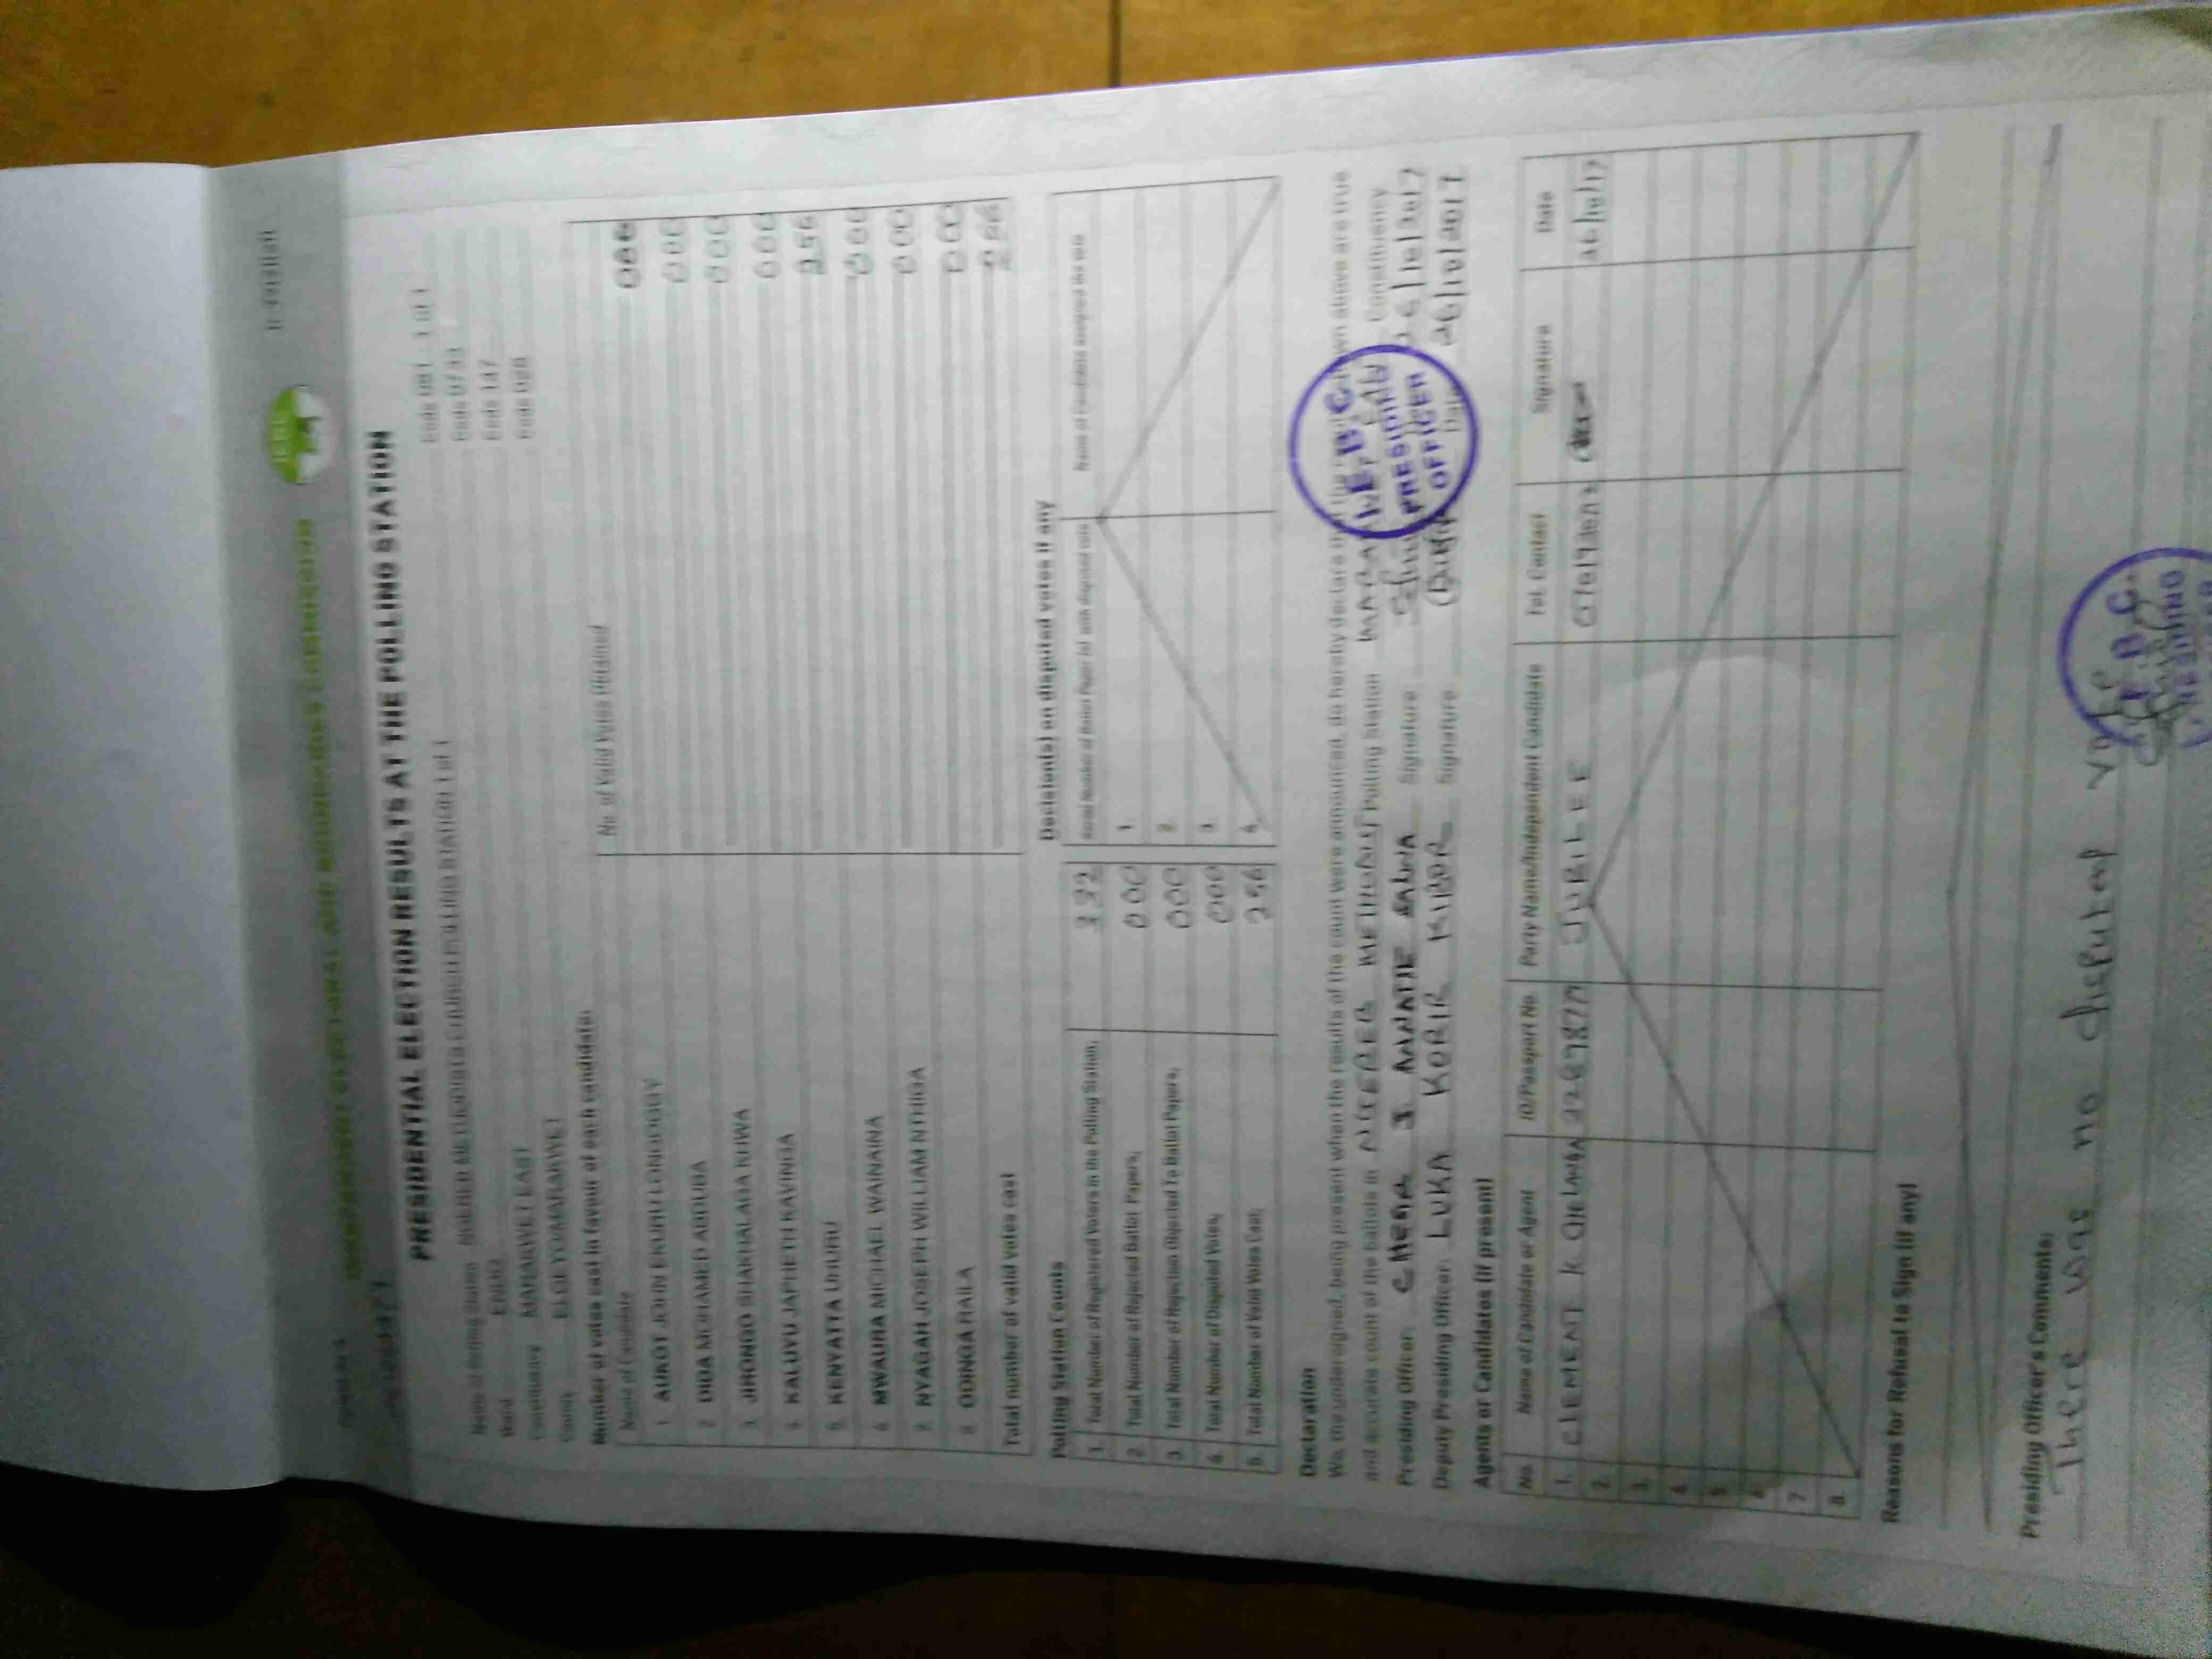 INDEPENDENT ELECTORAL AND BOUNDARIES COMMISSION
PRESIDENTIAL ELECTION RESULTS AT THE POLLING STATION
Name of Polling Station
Code 081 1 of 1
Ward ENDO
Code 0733
Constituency MARAKWET EAST
Code 147
County ELGEYO/MARAKWET
Code 028
Number of votes cast in favour of each candidate:
Name of Candidate No. of Valid Votes Obtained
1 AUKOT JOHN EKURU LONGOGGY 000
2 DIDA MOHAMED ABDUBA 000
3 JIRONGO SHAKHALAGA KHWA 000
4 KALUYU JAPHETH KAVINGA 000
5 KENYATTA UHURU 256
6 MWAURA MICHAEL WAINAINA 000
7 NYAGAH JOSEPH WILLIAM NTHIGA 000
8 ODINGA RAILA 000
Total number of valid votes cast 256
Polling Station Counts
1 Total Number of Registered Voters in the Polling Station;
2 Total Number of Rejected Ballot Papers; 000
3 Total Number of Rejection Objected To Ballot Papers; 000
4 Total Number of Disputed Votes; 000
5 Total Number of Valid Votes Cast; 256
Decision(s) on disputed votes if any
1.
2.
3.
4.
Declaration
We, the undersigned, being present when the results of the count were announced, do hereby declare that the above are true
and accurate count of the ballots in Polling Station Constituency
Presiding Officer: Signature 26/10/2017
Deputy Presiding Officer: LUKA KORIR KIBOR Signature Date 26/10/2017
I.E.B.C.
PRESIDING
OFFICER
Agents or Candidates (if present)
No. Name of Candidate or Agent ID/Passport No. Party Name/Independent Candidate Tel. Contact Signature Date
1. CLEMENT K JUBILEE 26/10/17
2.
3.
4.
5.
6.
7
8
Reasons for Refusal to Sign (if any)
Presiding Officer's Comments:
There was no
I.E.B.C.
PRESIDING